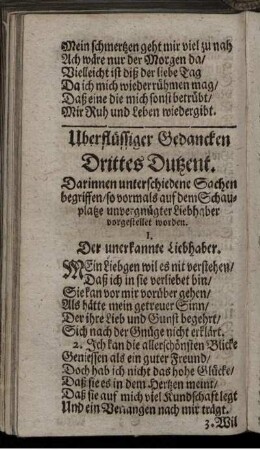 Mein schmertzen geht mir viel zu nah
Ach wäre nur der Morgen da/
Vielleicht ist diß der liebe Tag
Da ich mich wiederrühmen mag/
Daß eine die mich sonst betrübt/
Mir Ruh und Leben wiedergibt.
Uberflüssiger Gedancken
Drittes Dutzent.
Darinnen unterschiedene Sachen
begriffen/ so vormals auf dem Schau-
platze unvergnügter Liebhaber
vorgestellet worden.
1.
Der unerkannte Liebhaber.
MEin Liebgen wil es nit verstehen/
Daß ich in sie verliebet bin/
Sie kan vor mir vorüber gehen/
Als hätte mein getreuer Sinn/
Der ihre Lieb und Gunst begehrt/
Sich nach der Gnüge nicht erklärt.
2. Ich kan die allerschönsten Blicke
Geniessen als ein guter Freund/
Doch hab ich nicht das hohe Glücke/
Daß sie es in dem Hertzen meint/
Daß sie auf mich viel Kundschaft legt
Und ein Verlangen nach mir trägt.
3. Wil